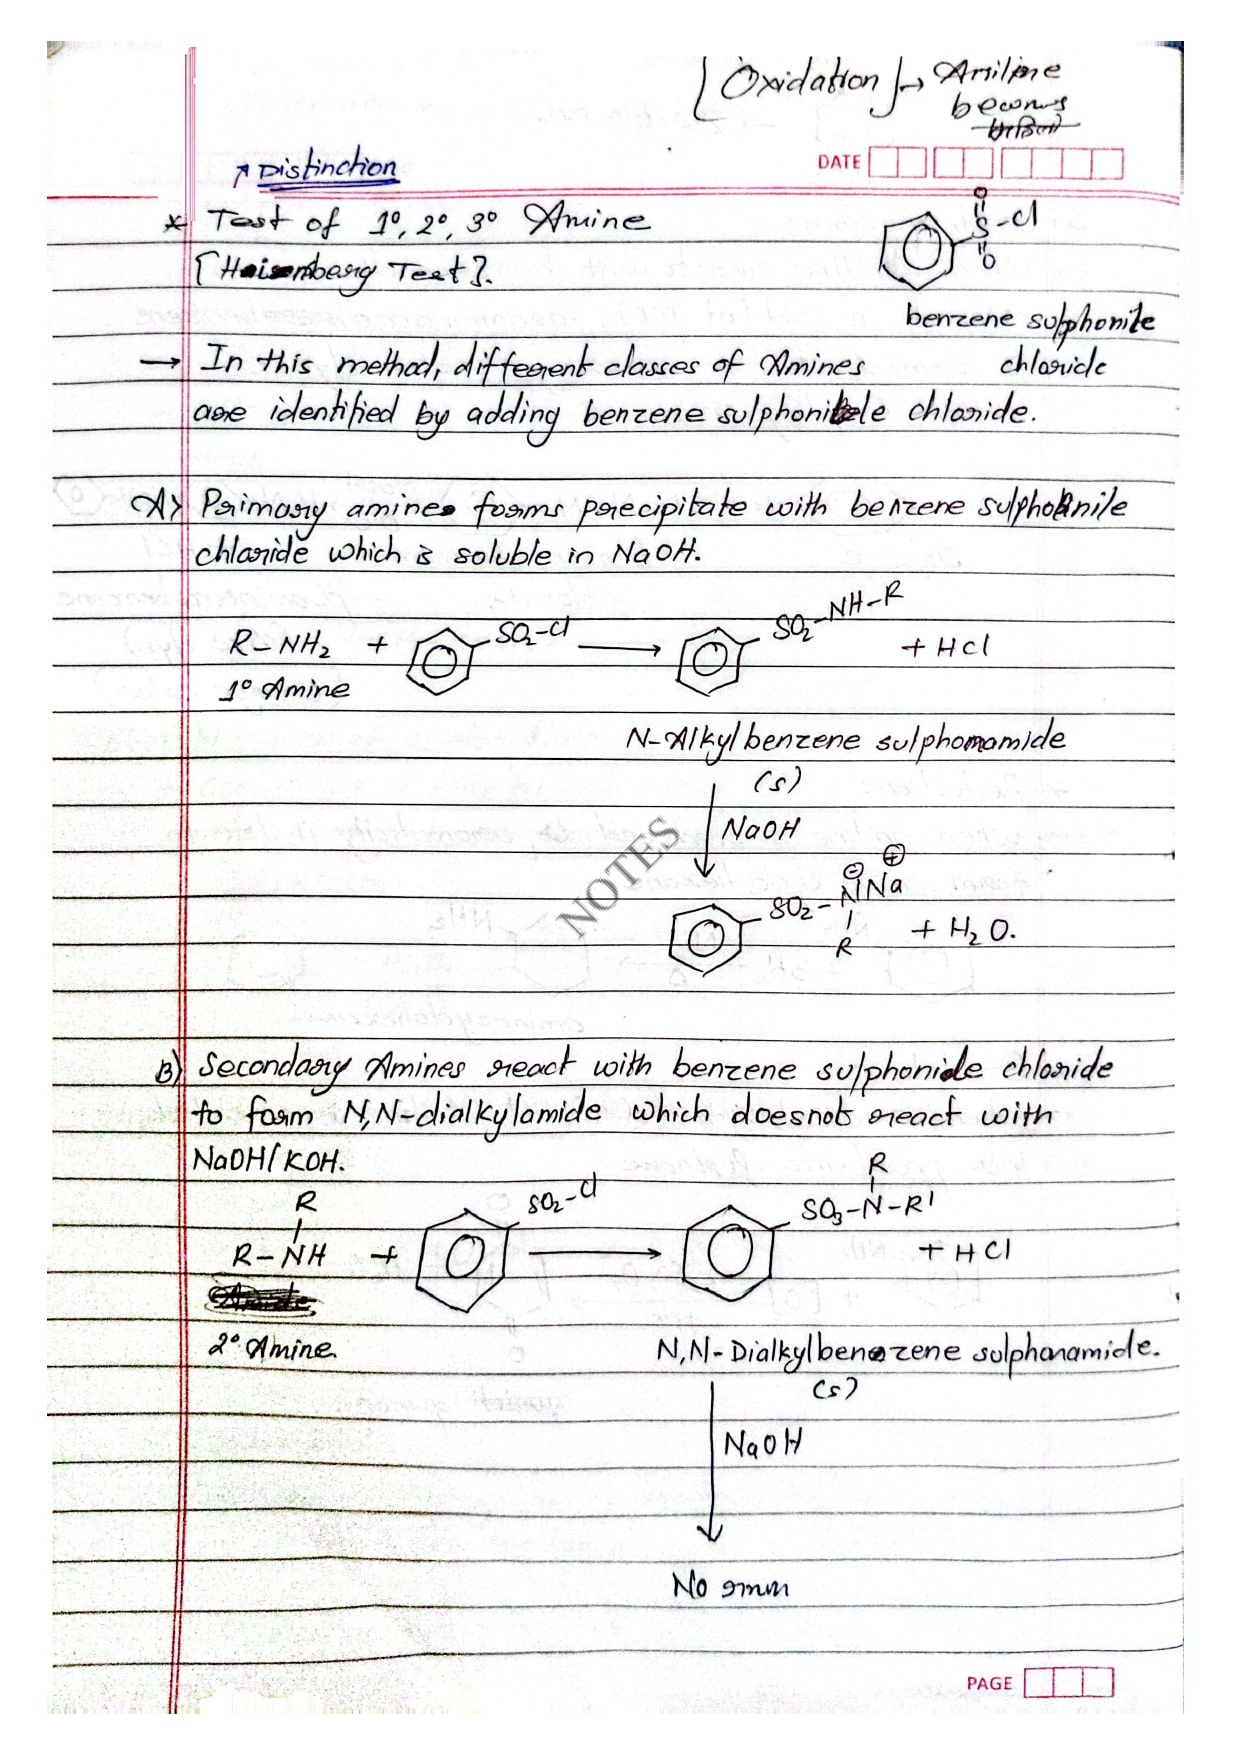 [Oxidation]→ Aniline
becomes
DATE
↗ Distinction
* Test of 1°, 2°, 3° Amine
[Heisemberg Test].
O
S-Cl
O
benzene sulphonile
chloride
→ In this method, different classes of Amines
are identified by adding benzene sulphonile chloride.
A) Primary amines forms precipitate with benzene sulphonile
chloride which is soluble in NaOH.
R-NH₂ + SO₂-Cl ⟶ SO₂-NH-R + HCl
1° Amine
N-Alkylbenzene sulphomamide
(s)
NaOH
NOTES
⊖ ⊕
SO₂-NNa
R
+ H₂O.
B) Secondary Amines react with benzene sulphonide chloride
to form N,N-dialkylamide which doesnot react with
NaOH/KOH.
R R
R-NH + SO₂-Cl ⟶ SO₃-N-R' + HCl
2° Amine.
N,N-Dialkylbenezene sulphonamide.
(s)
NaOH
No rmm
PAGE